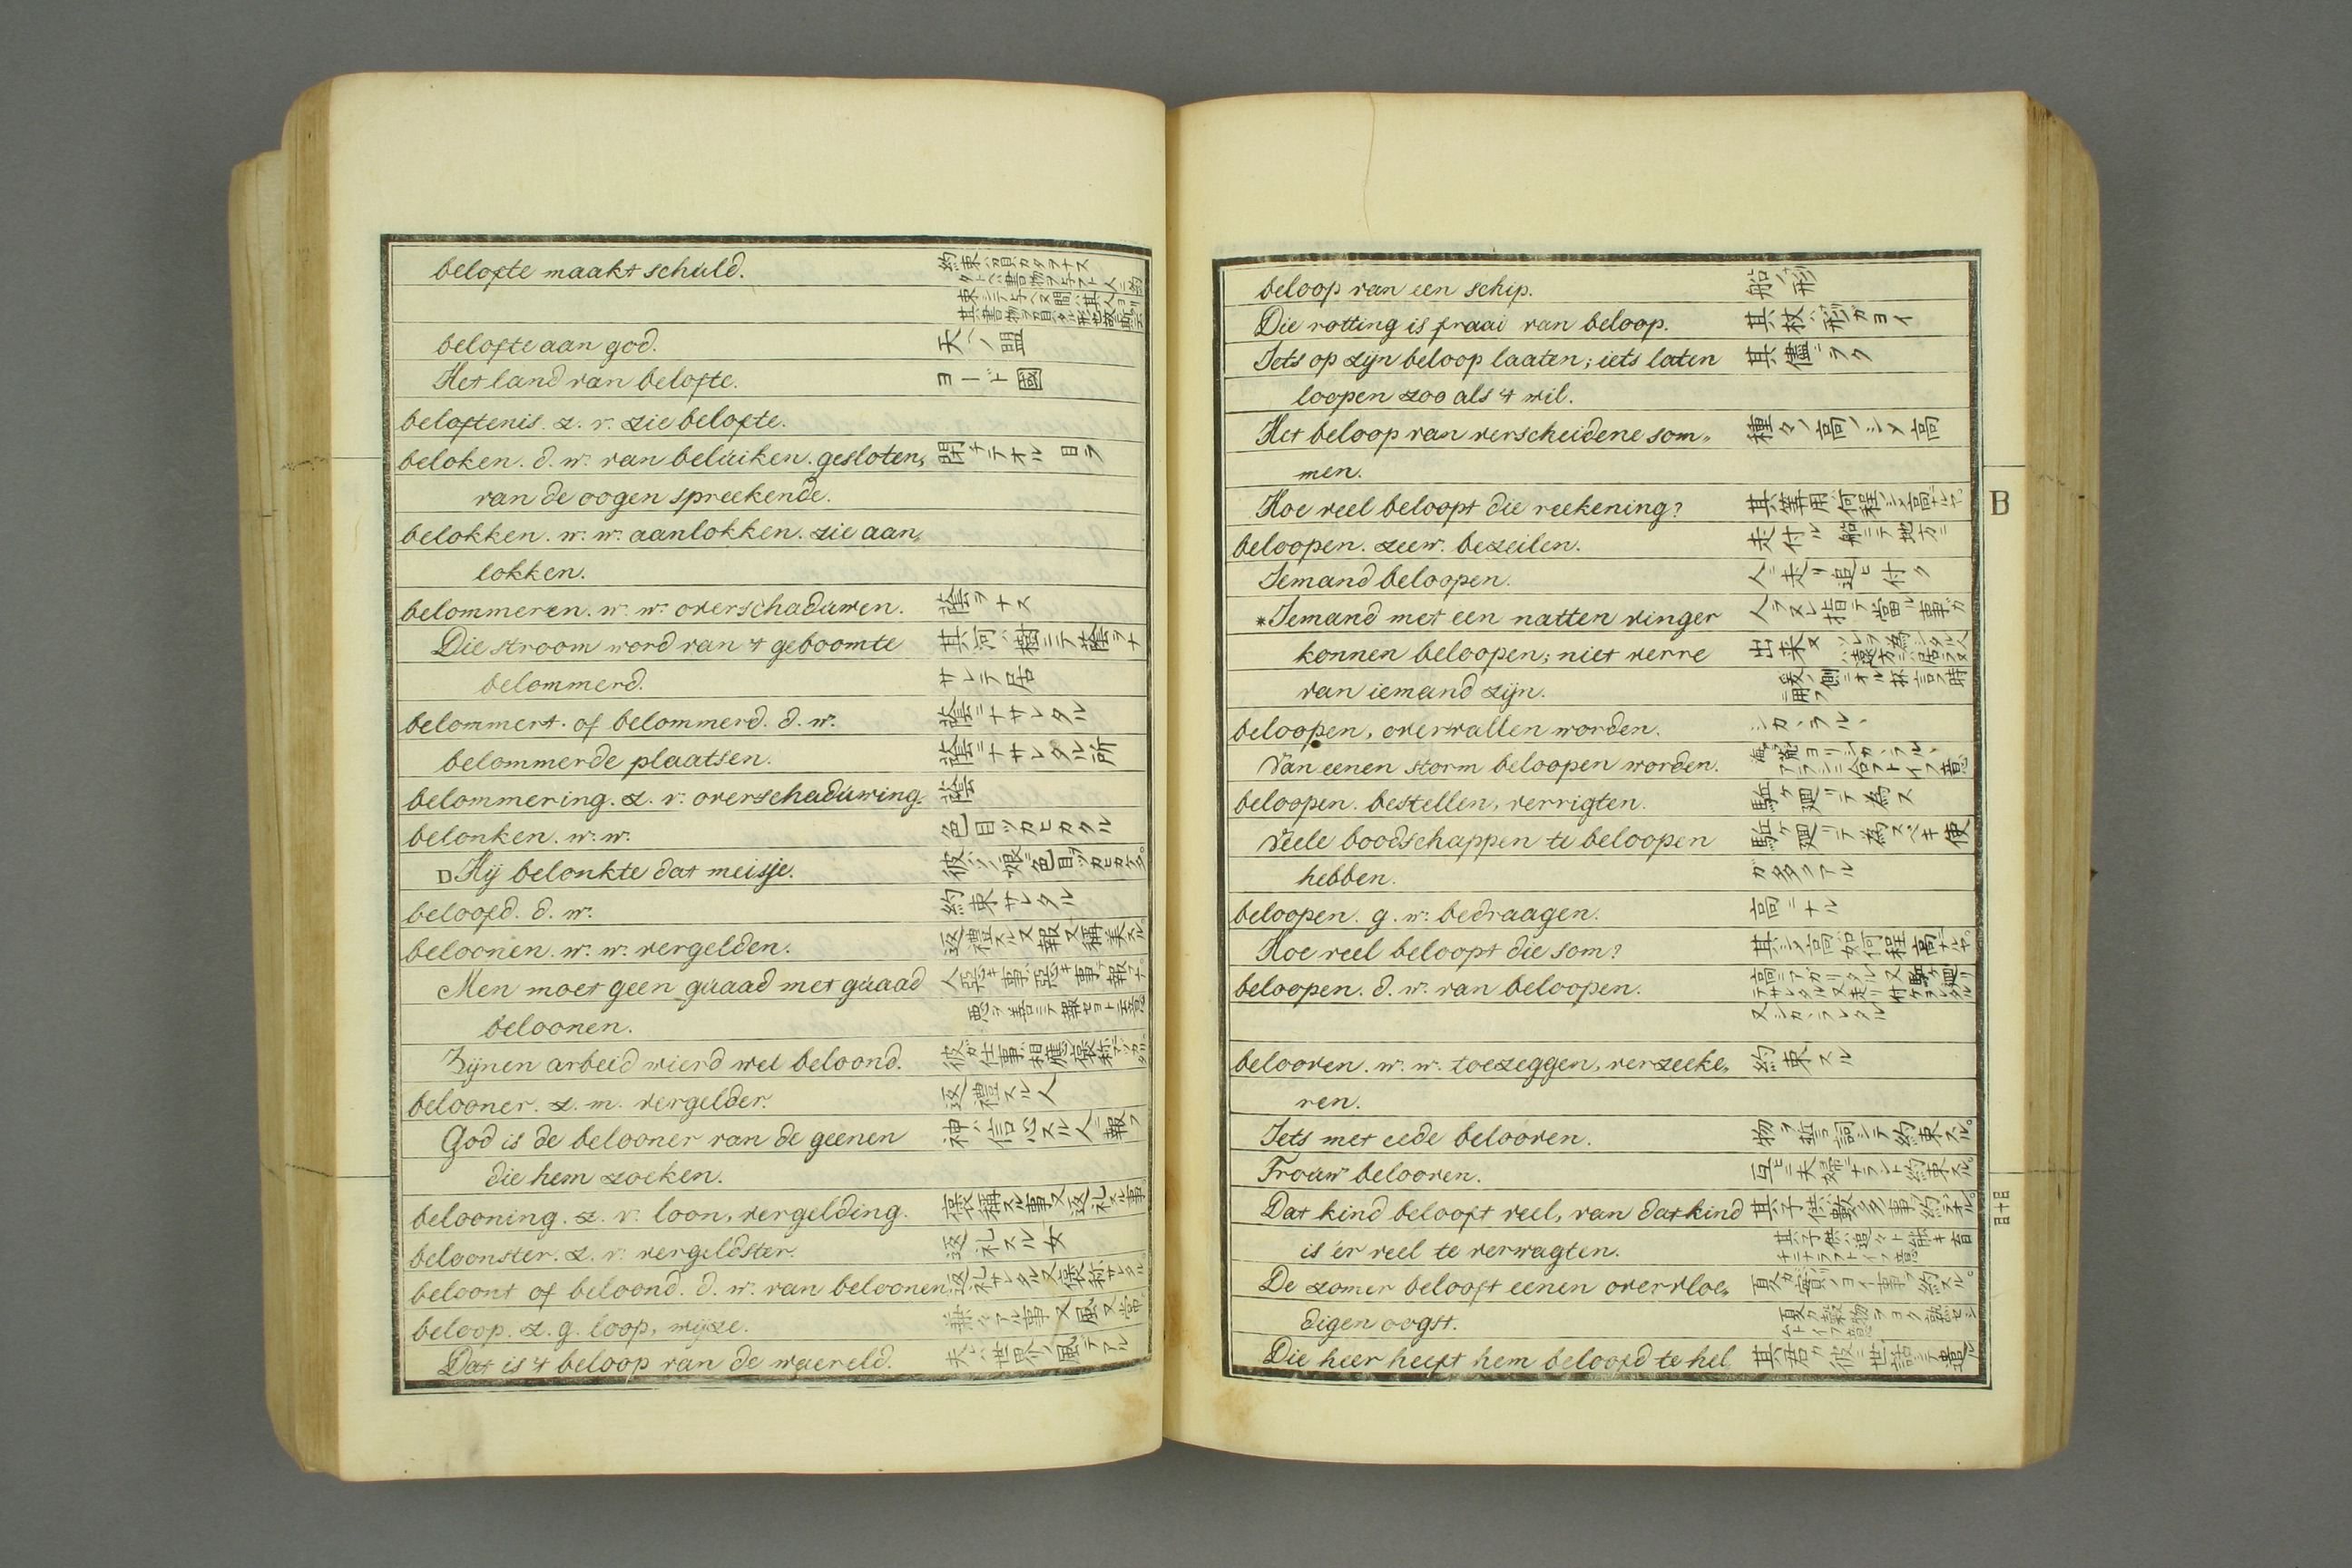 belofte maakt schuld. 約束ハ負カタヲナス
belofte aan god. 天ヘノ盟
Het land van belofte. ヨードト國
beloftenis. z. v. zie belofte.
beloken. d. w. van beluiken. gesloten, 閉テオル 目ヲ
van de oogen spreekende.
belokken. w. w. aanlokken. zie aan„
lokken.
belommeren. w. w. overschaduwen. 蔭ヲナス
Die stroom word van 't geboomte 其河ハ樹ニテ蔭ヲナ
belommerd. サレテ居
belommert. of belommerd. d. w. 蔭ニナサレタル
belommerde plaatsen. 蔭ニナサレタル所
belommering. z. v. overschaduwing. 蔭
belonken. w. w. 色目ツカヒカクル
D Hij belonkte dat meisje.
beloofd. d. w. 約束サレタル
beloonen. w. w. vergelden. 返禮スル又報又稱美スル
Men moet geen quaad met quaad 人ハ惡キ事ハ惡キ事ヲ報ナ
beloonen. 悪ヲ善ニテ報セヨト云意
Zijnen arbeid wierd wel beloond.
belooner. z. m. vergelder. 返禮スル人
God is de belooner van de geenen 神ハ信心スル人ニ報フ
die hem zoeken.
belooning. z. v. loon, vergelding. 褒稱スル事又返礼スル事
beloonster. z. v. vergeldster. 返礼スル女
beloont of beloond. d. w. van beloonen 返礼サレタル又褒称サレタル
beloop. z. g. loop, wijze.
Dat is 't beloop van de waereld. 夫ハ世界ノ風デアル
beloop van een schip. 船ノ形
Die rotting is fraai van beloop. 其杖ハ形ガヨイ
Iets op zijn beloop laaten; iets laten 其儘ニヲク
loopen zoo als 't wil.
Het beloop van verscheidene som„ 種々ノ高ノシメ高
men.
Hoe veel beloopt die reekening? 其筭用ハ何程ノシメ高ナルヤ。
B
beloopen. zeew. bezeilen. 走付ル 船ニテ地方ニ
Iemand beloopen. 人ニ走リ追ヒ付ク
*Iemand met een natten vinger 人ヲヌレ指テ當ル事ガ
konnen beloopen; niet verre 出来ヌ
van iemand zijn.
beloopen, overvallen worden. シカヽラルヽ
Van eenen storm beloopen worden.
beloopen. bestellen, verrigten. 駈ケ廻リテ為ス
Veele boodschappen te beloopen 駈ケ廻リテ為スベキ使
hebben. ガ多クアル
beloopen. g. w. bedraagen. 高ニナル
Hoe veel beloopt die som? 其シメ高如何程高ナルヤ。
beloopen. d. w. van beloopen.
又シカヽラレタル
belooven. w. w. toezeggen, verzeeke„ 約束スル
ren.
Iets met eede belooven. 物ヲ誓詞シテ約束スル。
Trouw belooven. 互ヒニ夫婦ニナラント約束スル。
Dat kind belooft veel, van dat kind
is 'er veel te verwagten.
De zomer belooft eenen overvloe„ 夏ガ實リノヨイ事ヲ約スル。
digen oogst.
Die heer heeft hem beloofd te hel